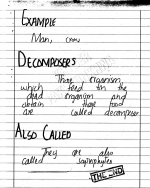 EXAMPLE
Man, cow
DECOMPOSERS
Those organism,
which feed on the
dead organism and
obtain their food
are called decomposer
ALSO CALLED
They are also
called saprophytes
THE END